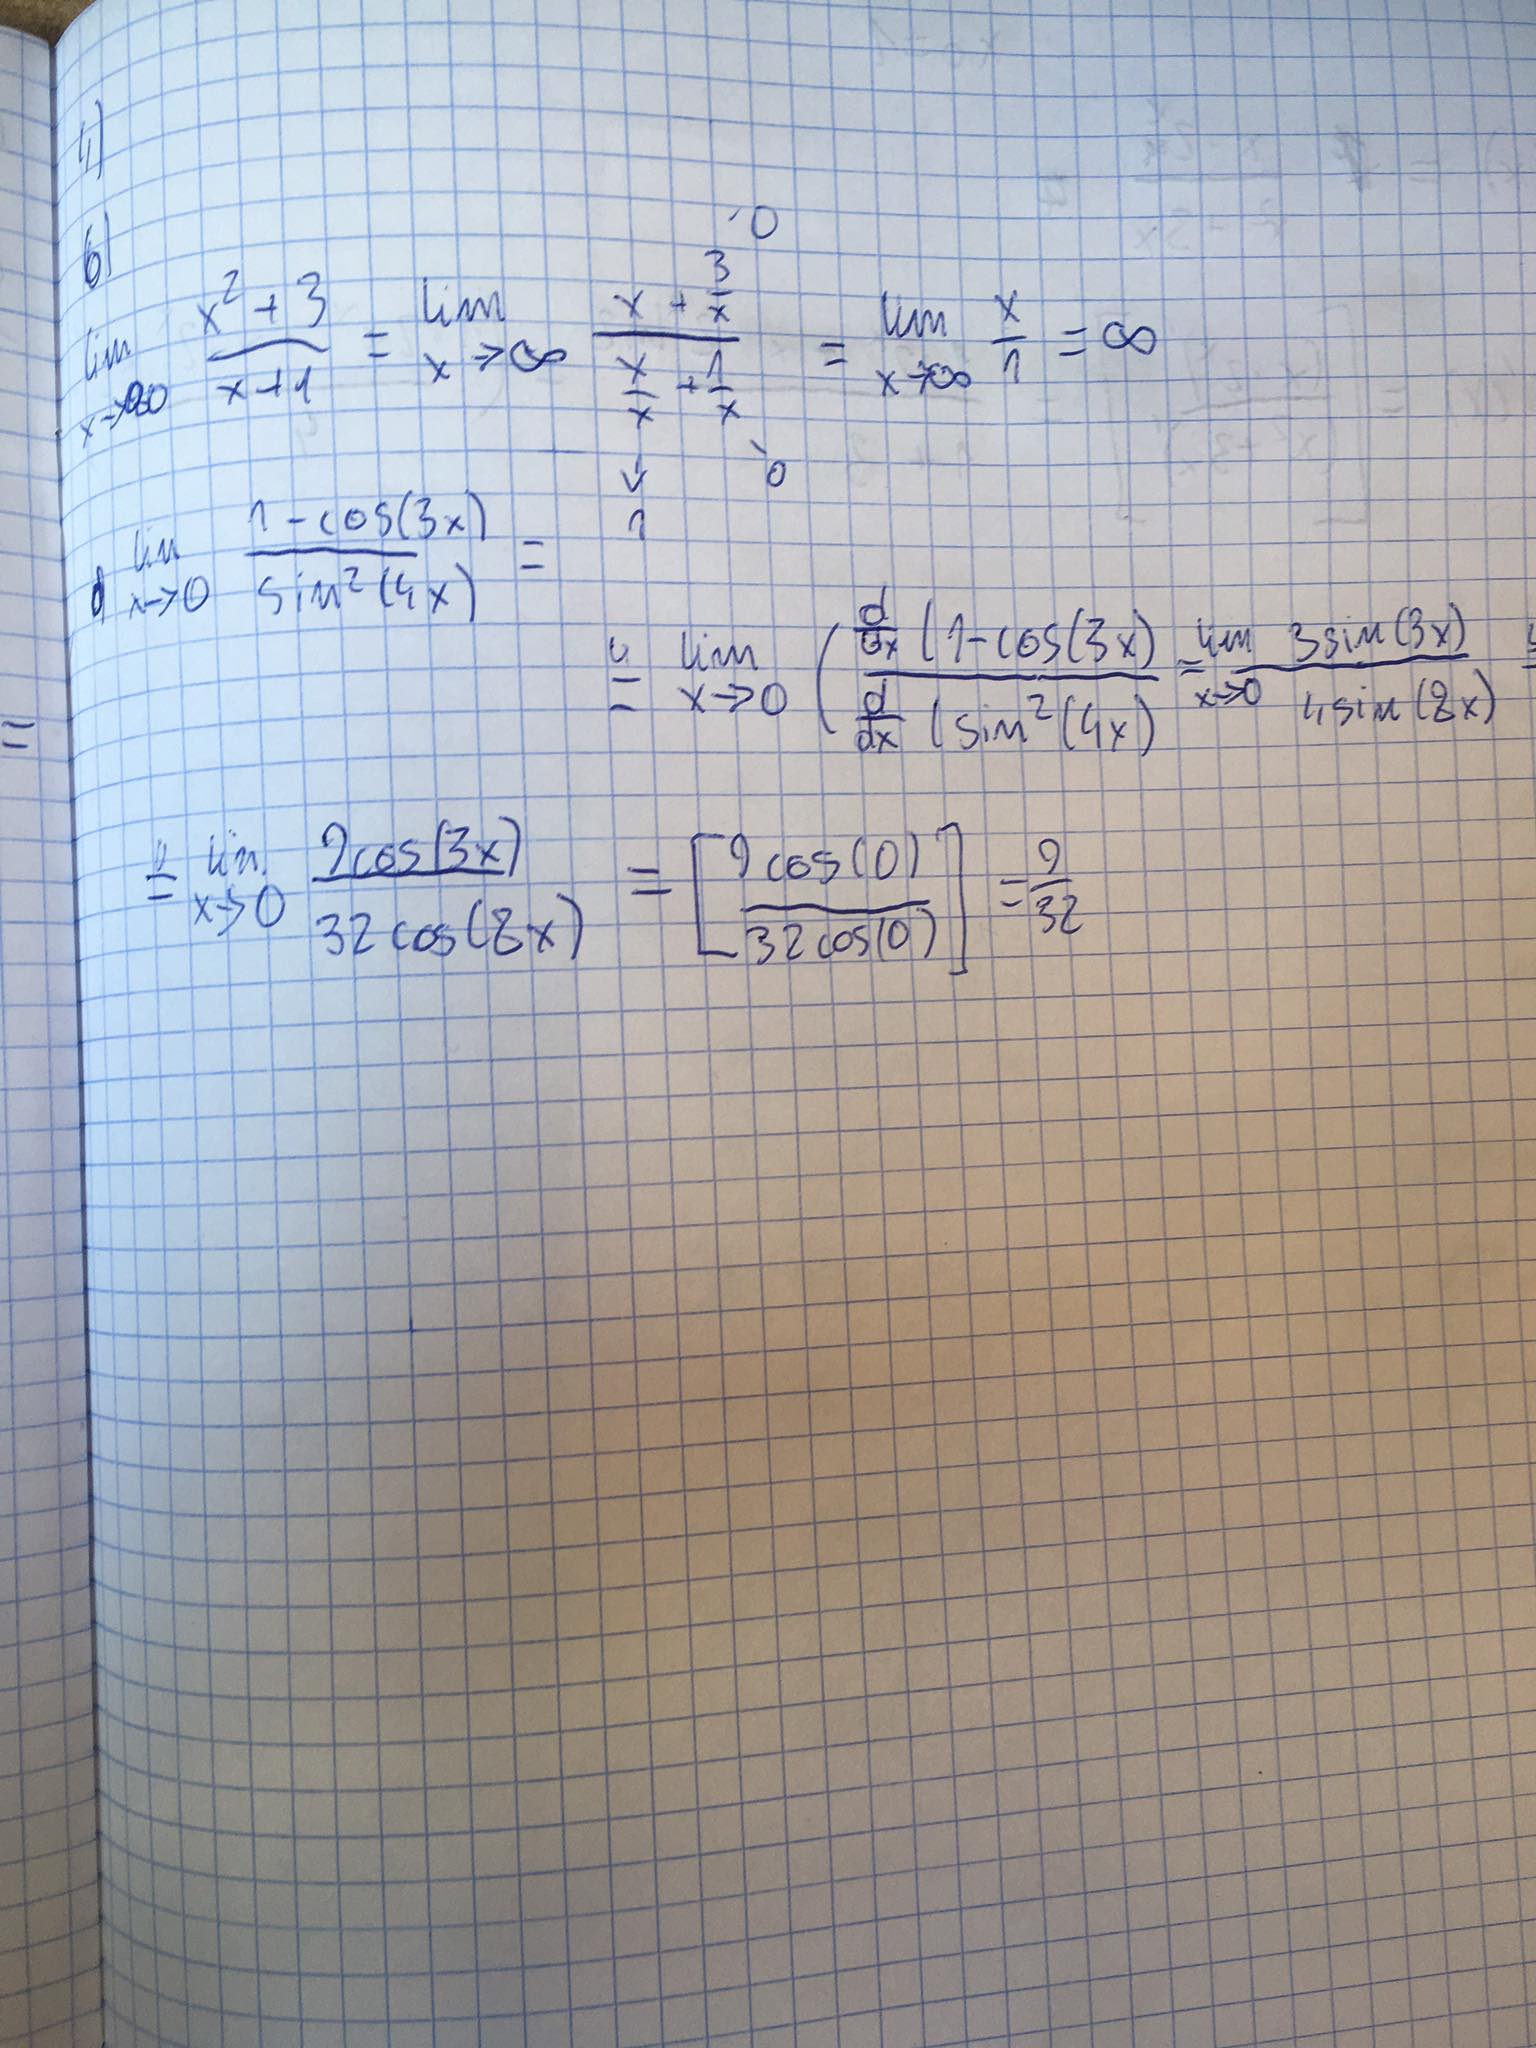 4)
b)
lim x→∞ (x² + 3)/(x+1) = lim x→∞ (x + 3/x)/(x/x + 1/x) = lim x→∞ x/1 = ∞
0
0
↓
1
d lim x→0 (1-cos(3x))/(sin²(4x)) =
H= lim x→0 ( d/dx (1-cos(3x) / d/dx (sin²(4x) = lim x→0 3sin(3x)/4sin(8x) H=
=
H= lim x→0 9cos(3x)/32cos(8x) = [9cos(0)/32cos(0)] = 9/32